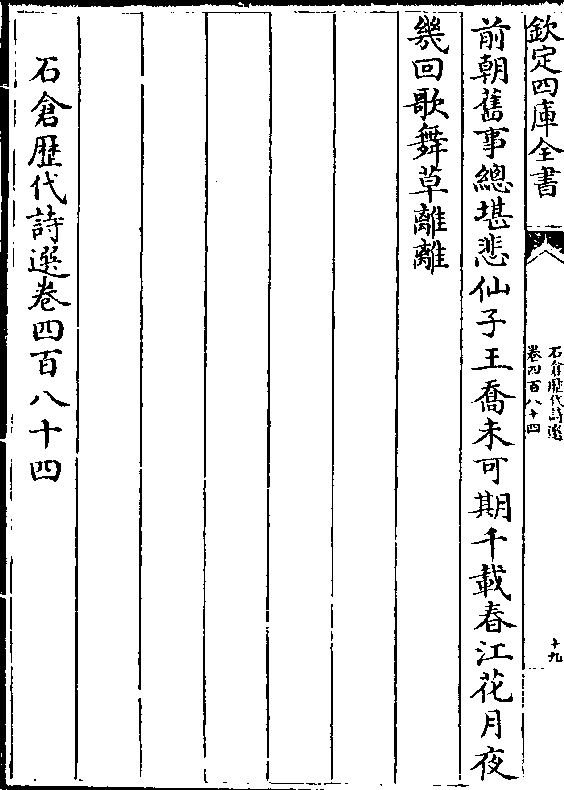 欽定四庫全書
石倉歴代詩選
卷四百八十四
十九
前朝舊事總堪悲仙子王喬未可期千載春江花月夜
幾回歌舞草離離
石倉歴代詩選卷四百八十四